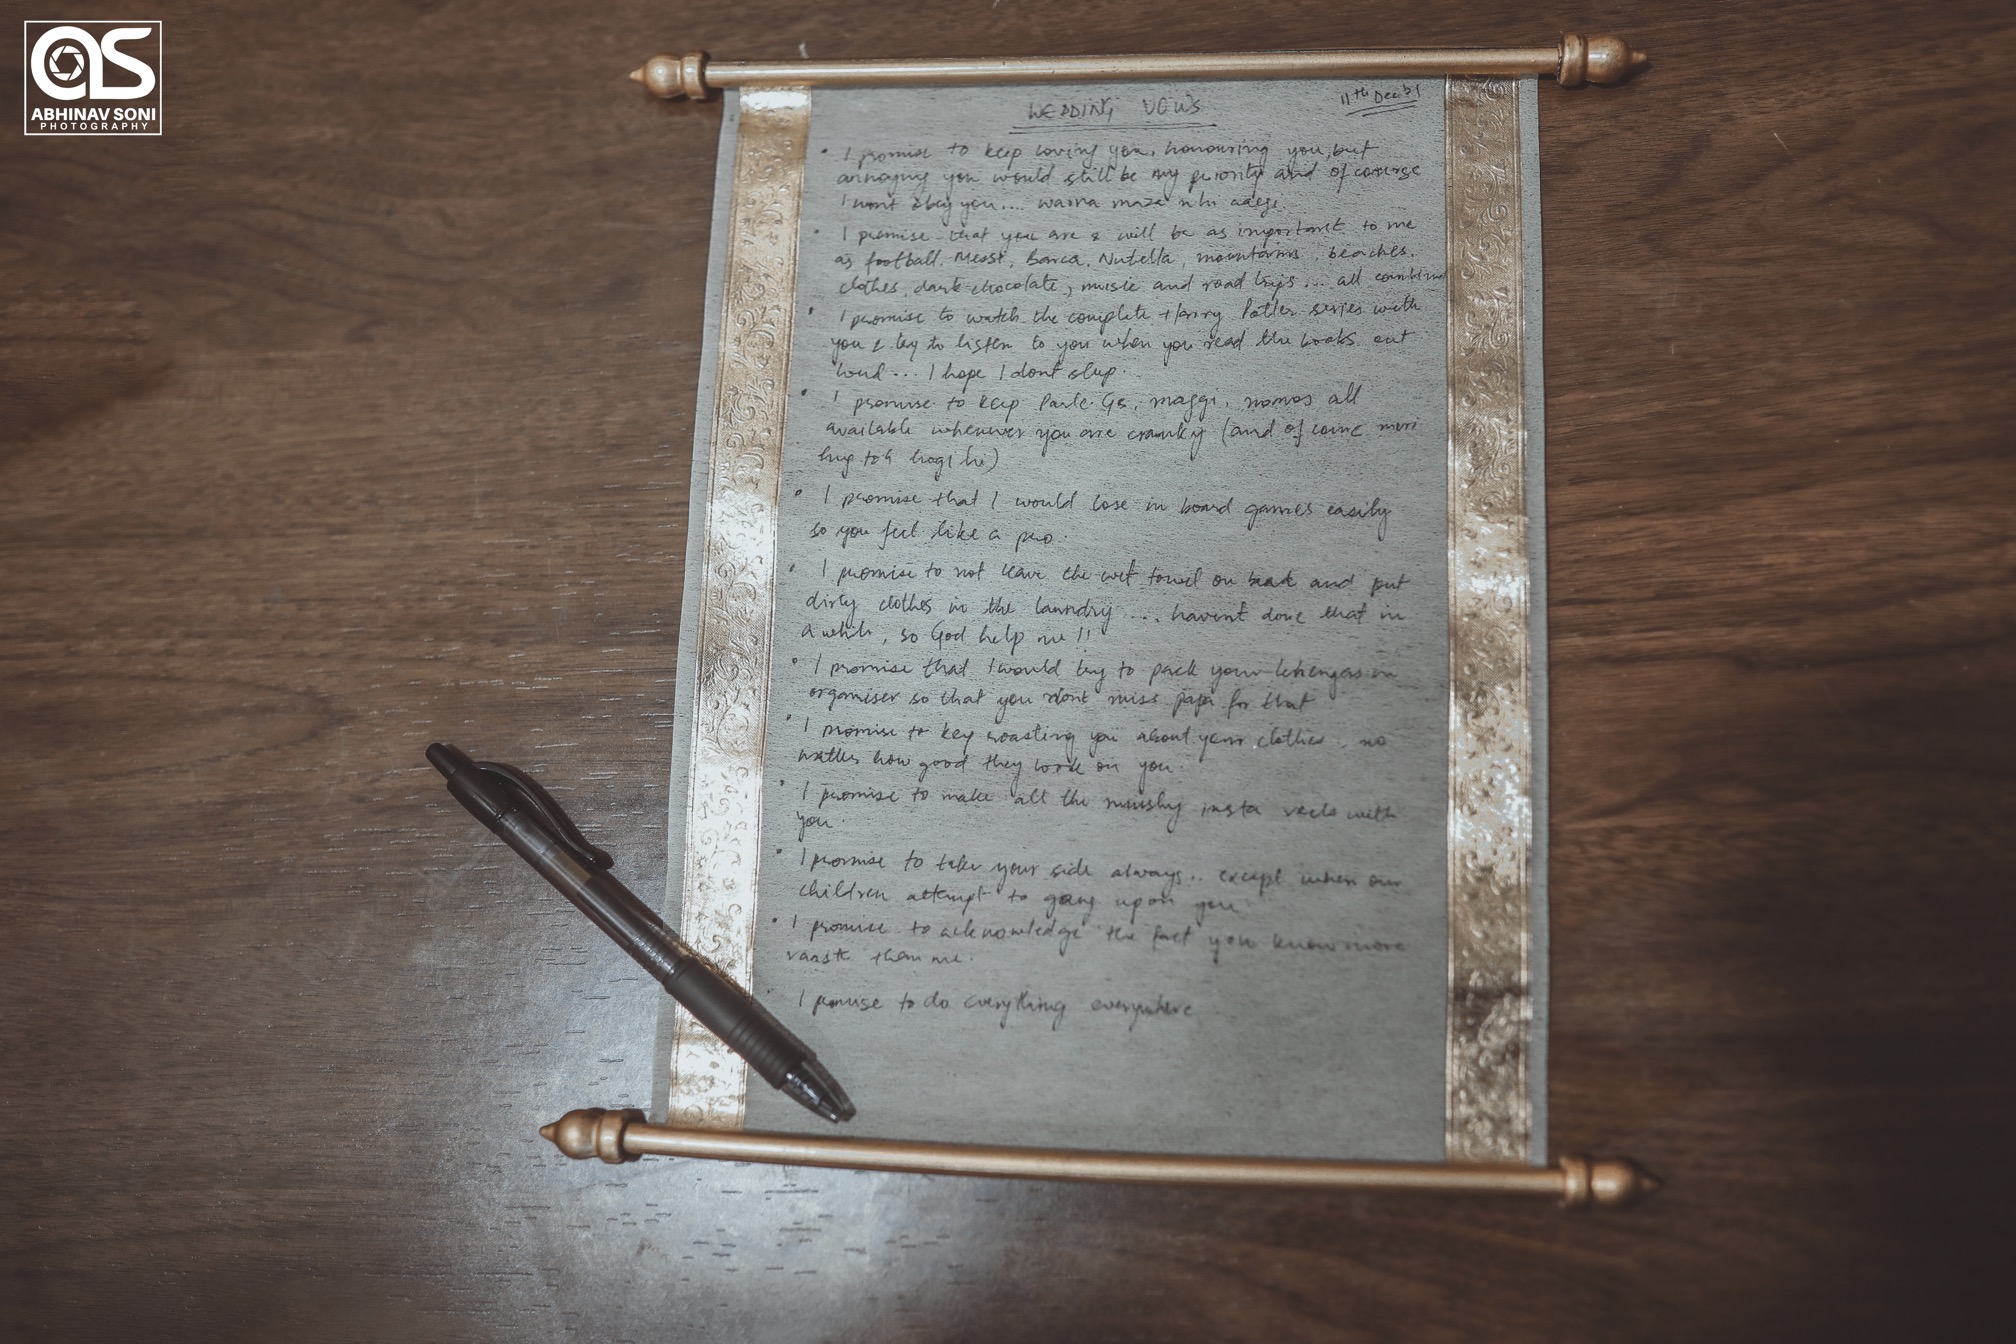 ABHINAV SONI
PHOTOGRAPHY
WEDDING VOWS
11th Dec
• I promise to keep loving you, honouring you, but
annoying you would still be my priority and of course
I wont obey you.... warna maza nhi aaega
• I promise that you are & will be as important to me
as football, Messi, Barca, Nutella, mountains, beaches,
clothes, dark chocolate, music and road trips... all combined
• I promise to watch the complete Harry Potter series with
you & try to listen to you when you read the books out
loud... I hope I dont sleep.
• I promise to keep Parle Gs, maggi, momos all
available whenever you are cranky (and of course meri
hug toh hogi hi)
• I promise that I would lose in board games easily
so you feel like a pro.
• I promise to not leave the wet towel on bed and put
dirty clothes in the laundry .... havent done that in
a while, so God help me !!
• I promise that I would try to pack your lehengas in
organiser so that you dont miss papa for that
• I promise to keep roasting you about your clothes, no
matter how good they look on you.
• I promise to make all the mushy insta reels with
you.
• I promise to take your side always.. except when our
children attempt to gang upon you
• I promise to acknowledge the fact you know more
raaste than me.
I promise to do everything everywhere